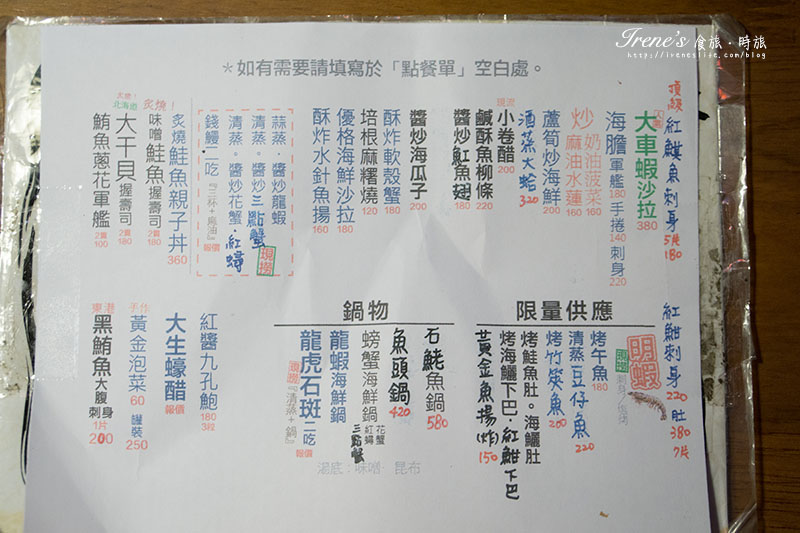 Irene's 食旅．時旅
http://ireneslife.com/blog
＊如有需要請填寫於「點餐單」空白處。
頂級 紅魽魚刺身 5片 180
大車蝦沙拉 380
海膽 軍艦 180 手捲 140 刺身 220
炒 奶油菠菜 160 麻油水蓮 160
蘆筍炒海鮮 200
酒蒸大蛤 320
小卷醋 200
鹹酥魚柳條 220
醬炒魟魚翅 200
醬炒海瓜子 200
酥炸軟殼蟹 180
培根麻糬燒 120
優格海鮮沙拉 180
酥炸水針魚揚 160
蒜蒸。醬炒龍蝦
清蒸。醬炒三點蟹
清蒸。醬炒花蟹．紅蟳
錢鰻二吃『三杯+麻油』報價
現撈
炙燒鮭魚親子丼 360
炙燒！
味噌鮭魚握壽司 2貫 180
北海道
大干貝握壽司 2貫 180
鮪魚蔥花軍艦 2貫 100
紅魽刺身 220 肚 380 7片
限量供應
明蝦
烤午魚 180
清蒸豆仔魚 220
烤竹筴魚 200
烤鮭魚肚。海鱺肚
烤海鱺下巴．紅魽下巴
黃金魚揚(炸) 150
鍋物
石鮱魚鍋 580
魚頭鍋 420
螃蟹海鮮鍋 花蟹 紅蟳 三點蟹
龍蝦海鮮鍋
龍虎石斑二吃『清蒸+鍋』報價
湯底：味噌 昆布
紅醬九孔鮑 180 3段
大生蠔醋 報價
手作
黃金泡菜 60 罐裝 250
東港
黑鮪魚大腹刺身 1片 200